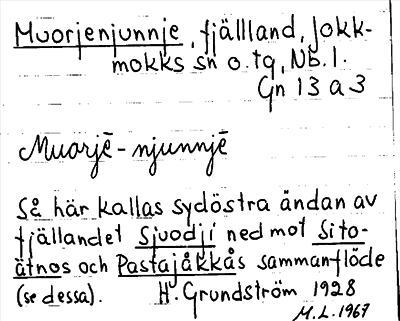 Muorjenjunnje, fjällland, Jokk-
mokks sn o. tg, Nb. l.
Gn 13 a 3
Muorjē-njunnjē
Så här kallas sydöstra ändan av
fjällandet Sjuodji ned mot Sito-
ätnos och Pastajåkkås sammanflöde
(se dessa). H. Grundström 1928
M.L. 1967